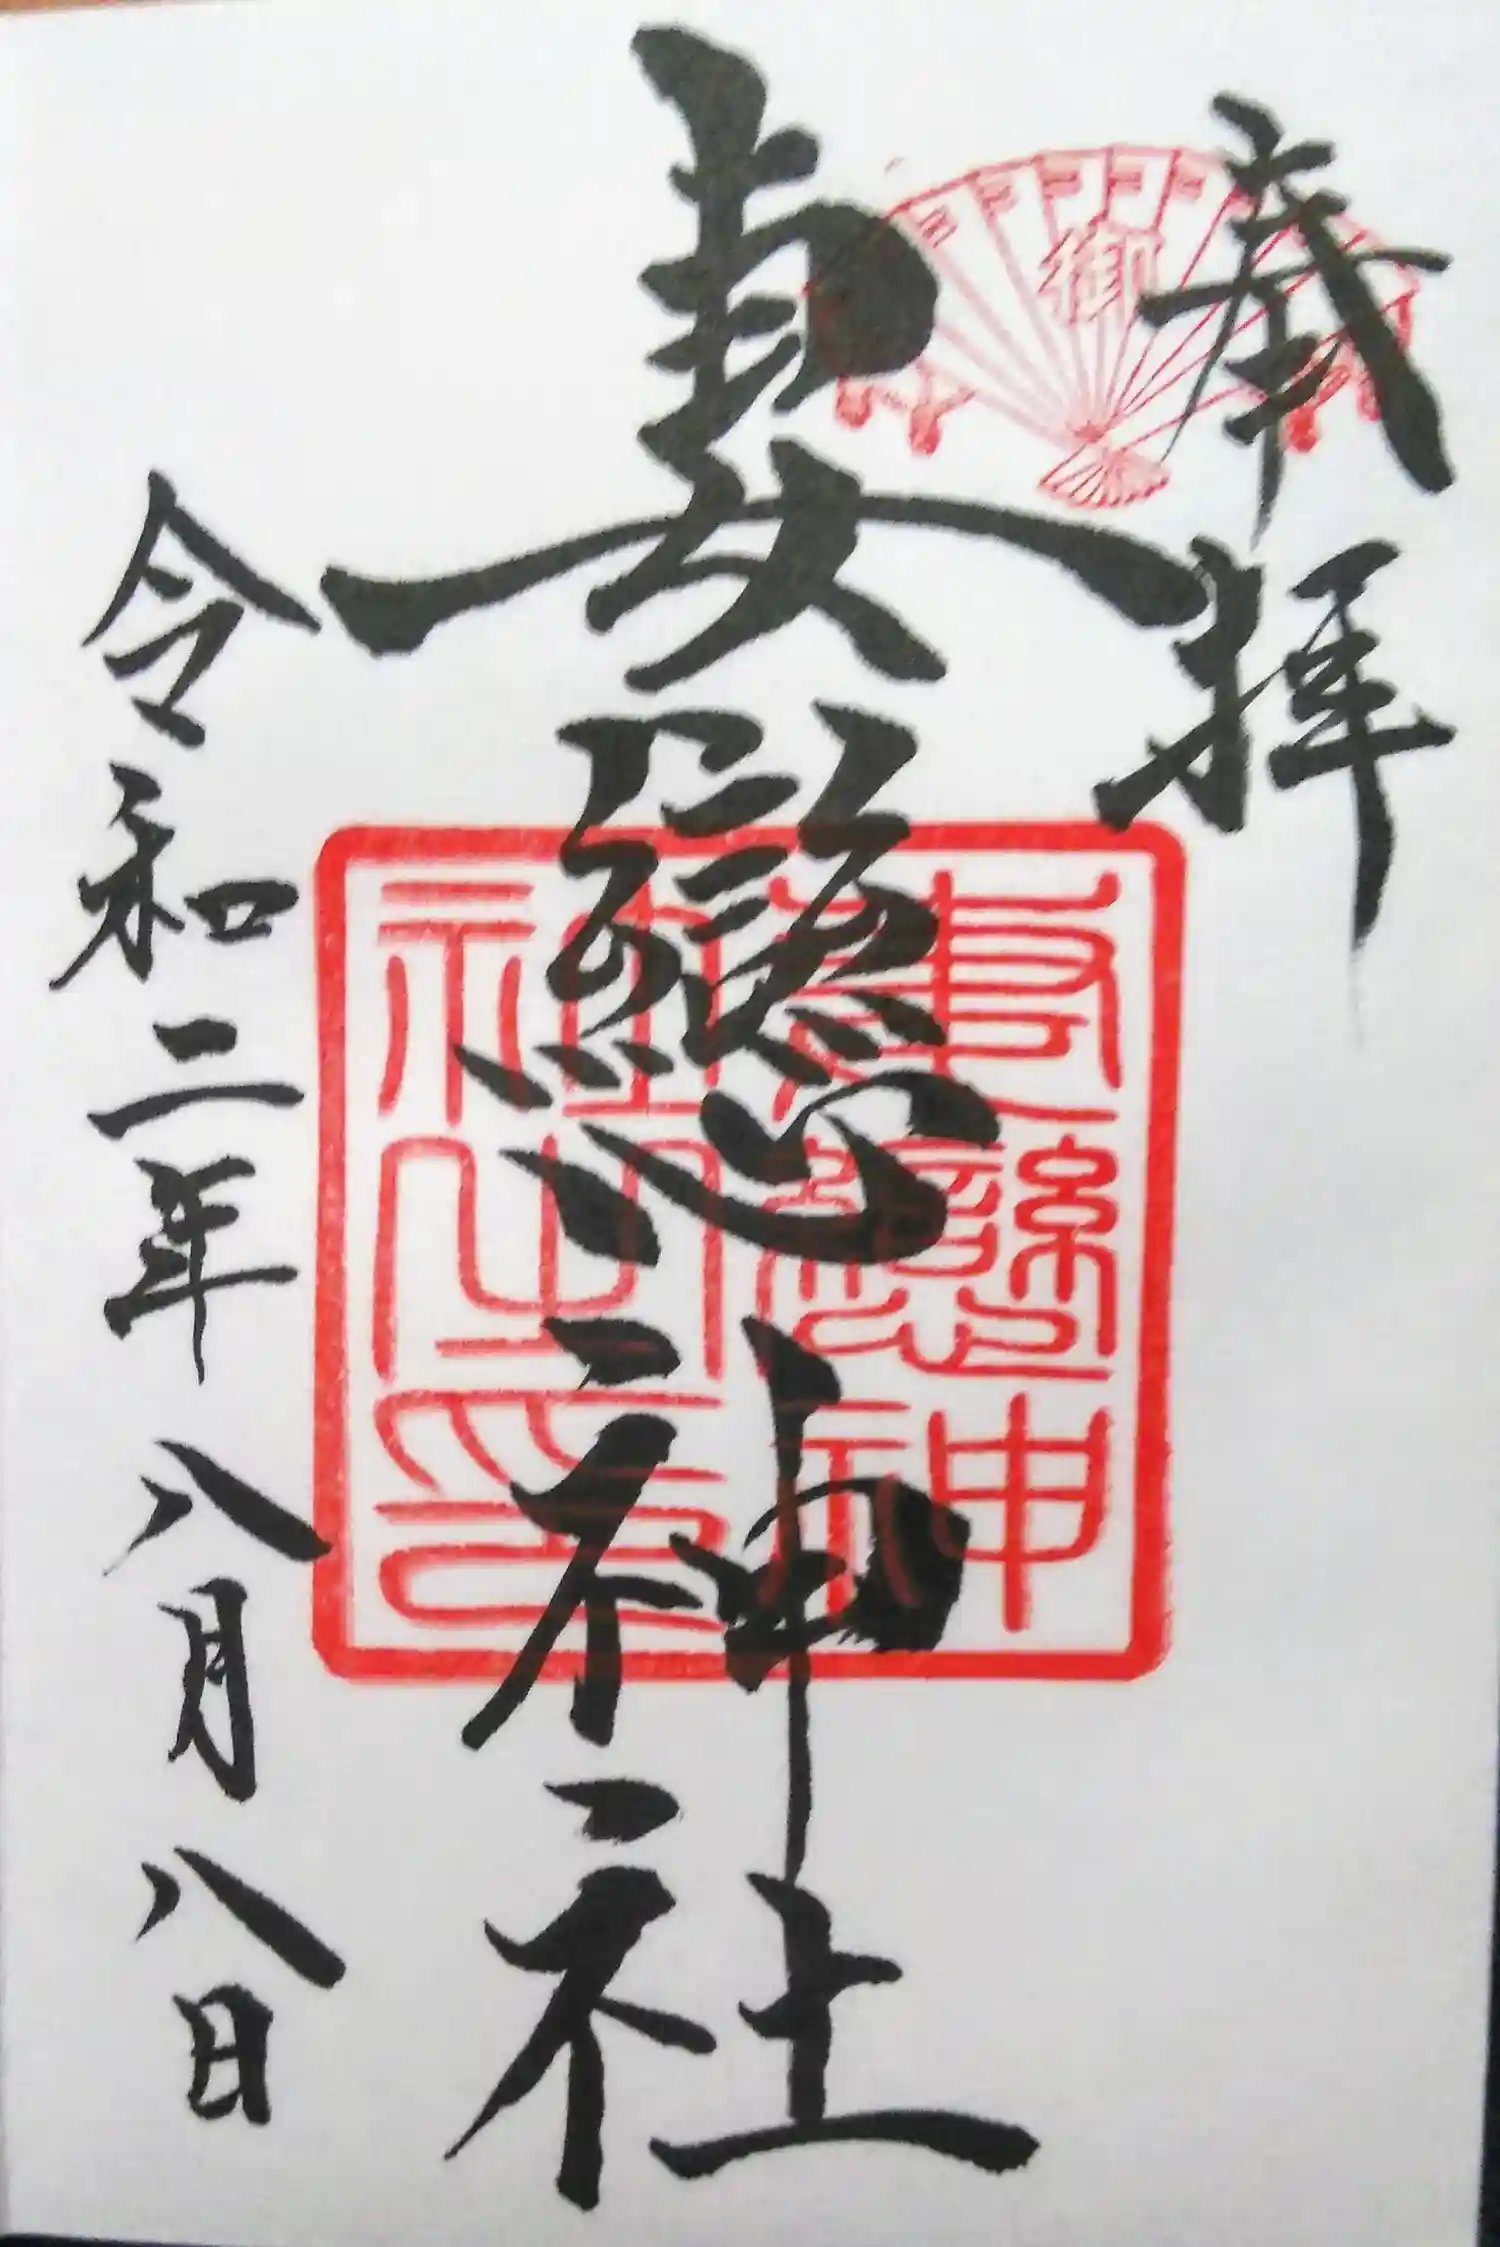 奉拝
御
妻戀神社
妻戀神
社之印
令和二年八月八日